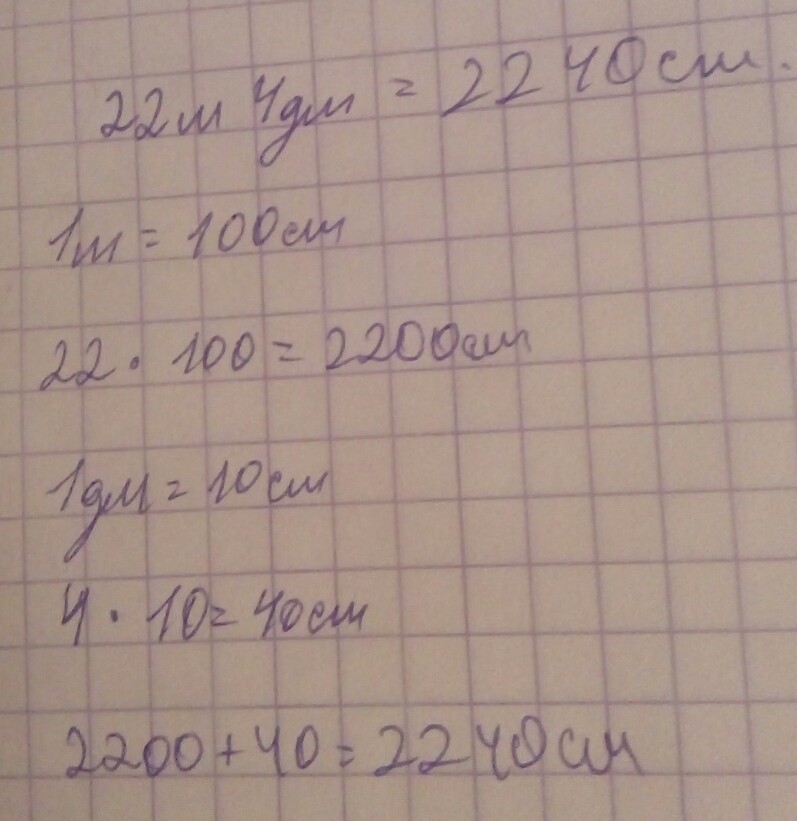 22м 4дм = 2240см.
1м = 100см
22 · 100 = 2200см
1дм = 10см
4 · 10 = 40см
2200 + 40 = 2240см